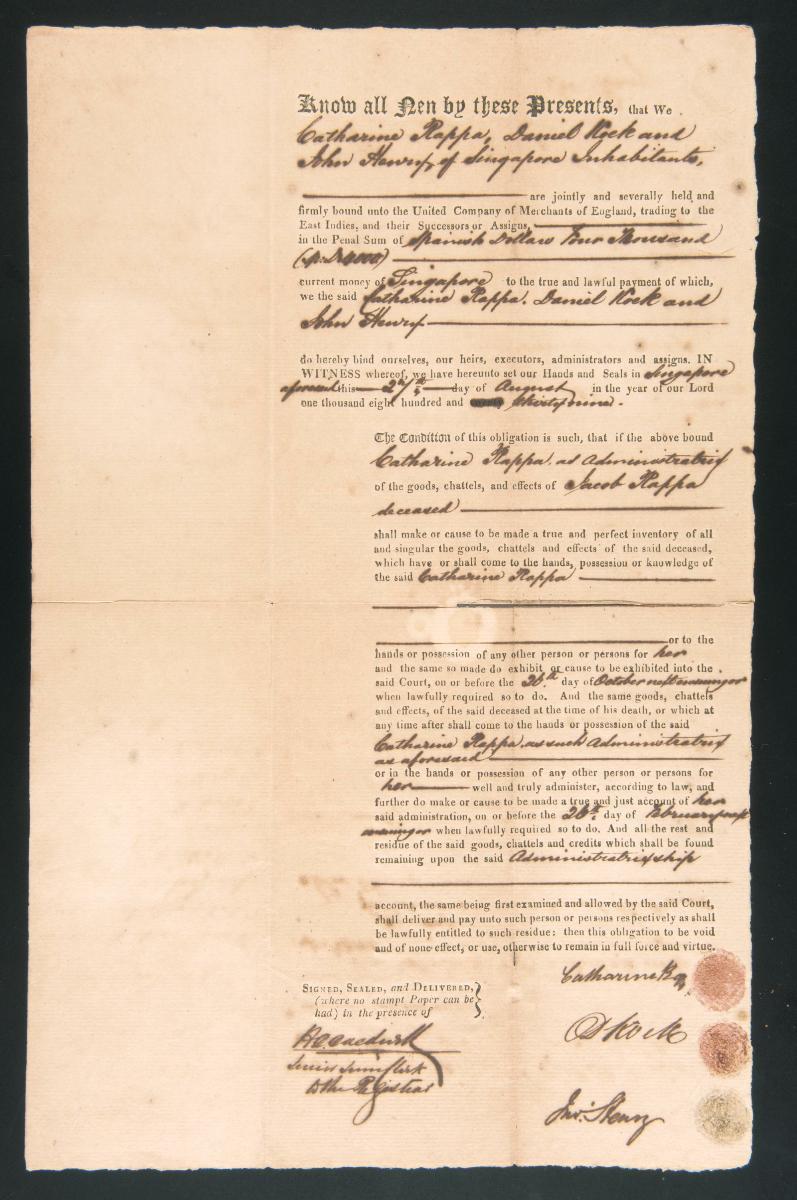 Know all Men by these Presents, that We
Catharine Rappa, Daniel Kock and
John Henry, of Singapore Inhabitants,
are jointly and severally held and
firmly bound unto the United Company of Merchants of England, trading to the
East Indies, and their Successors or Assigns,
in the Penal Sum of Spanish Dollars Four Thousand
(Sp: Drs 4000)
current money of Singapore to the true and lawful payment of which,
we the said Catharine Rappa, Daniel Kock and
John Henry
do hereby bind ourselves, our heirs, executors, administrators and assigns. IN
WITNESS whereof, we have hereunto set our Hands and Seals in Singapore
aforesaid this day of August in the year of our Lord
one thousand eight hundred and thirty nine.
The Condition of this obligation is such, that if the above bound
Catharine Rappa as Administratrix
of the goods, chattels, and effects of Jacob Rappa
deceased
shall make or cause to be made a true and perfect inventory of all
and singular the goods, chattels and effects of the said deceased,
which have or shall come to the hands, possession or knowledge of
the said Catharine Rappa
or to the
hands or possession of any other person or persons for her
and the same so made do exhibit or cause to be exhibited into the
said Court, on or before the 26th day of October next ensuing or
when lawfully required so to do. And the same goods, chattels
and effects, of the said deceased at the time of his death, or which at
any time after shall come to the hands or possession of the said
Catharine Rappa as such Administratrix
as aforesaid
or in the hands or possession of any other person or persons for
her well and truly administer, according to law, and
further do make or cause to be made a true and just account of her
said administration, on or before the 26th. day of February next
ensuing or when lawfully required so to do. And all the rest and
residue of the said goods, chattels and credits which shall be found
remaining upon the said Administratrixship
account, the same being first examined and allowed by the said Court,
shall deliver and pay unto such person or persons respectively as shall
be lawfully entitled to such residue: then this obligation to be void
and of none effect, or use, otherwise to remain in full force and virtue.
Catharine Rap
SIGNED, SEALED, and DELIVERED,
(where no stampt Paper can be
had) in the presence of
D Kock
Clerk
to the Registrar
Jno. Henry